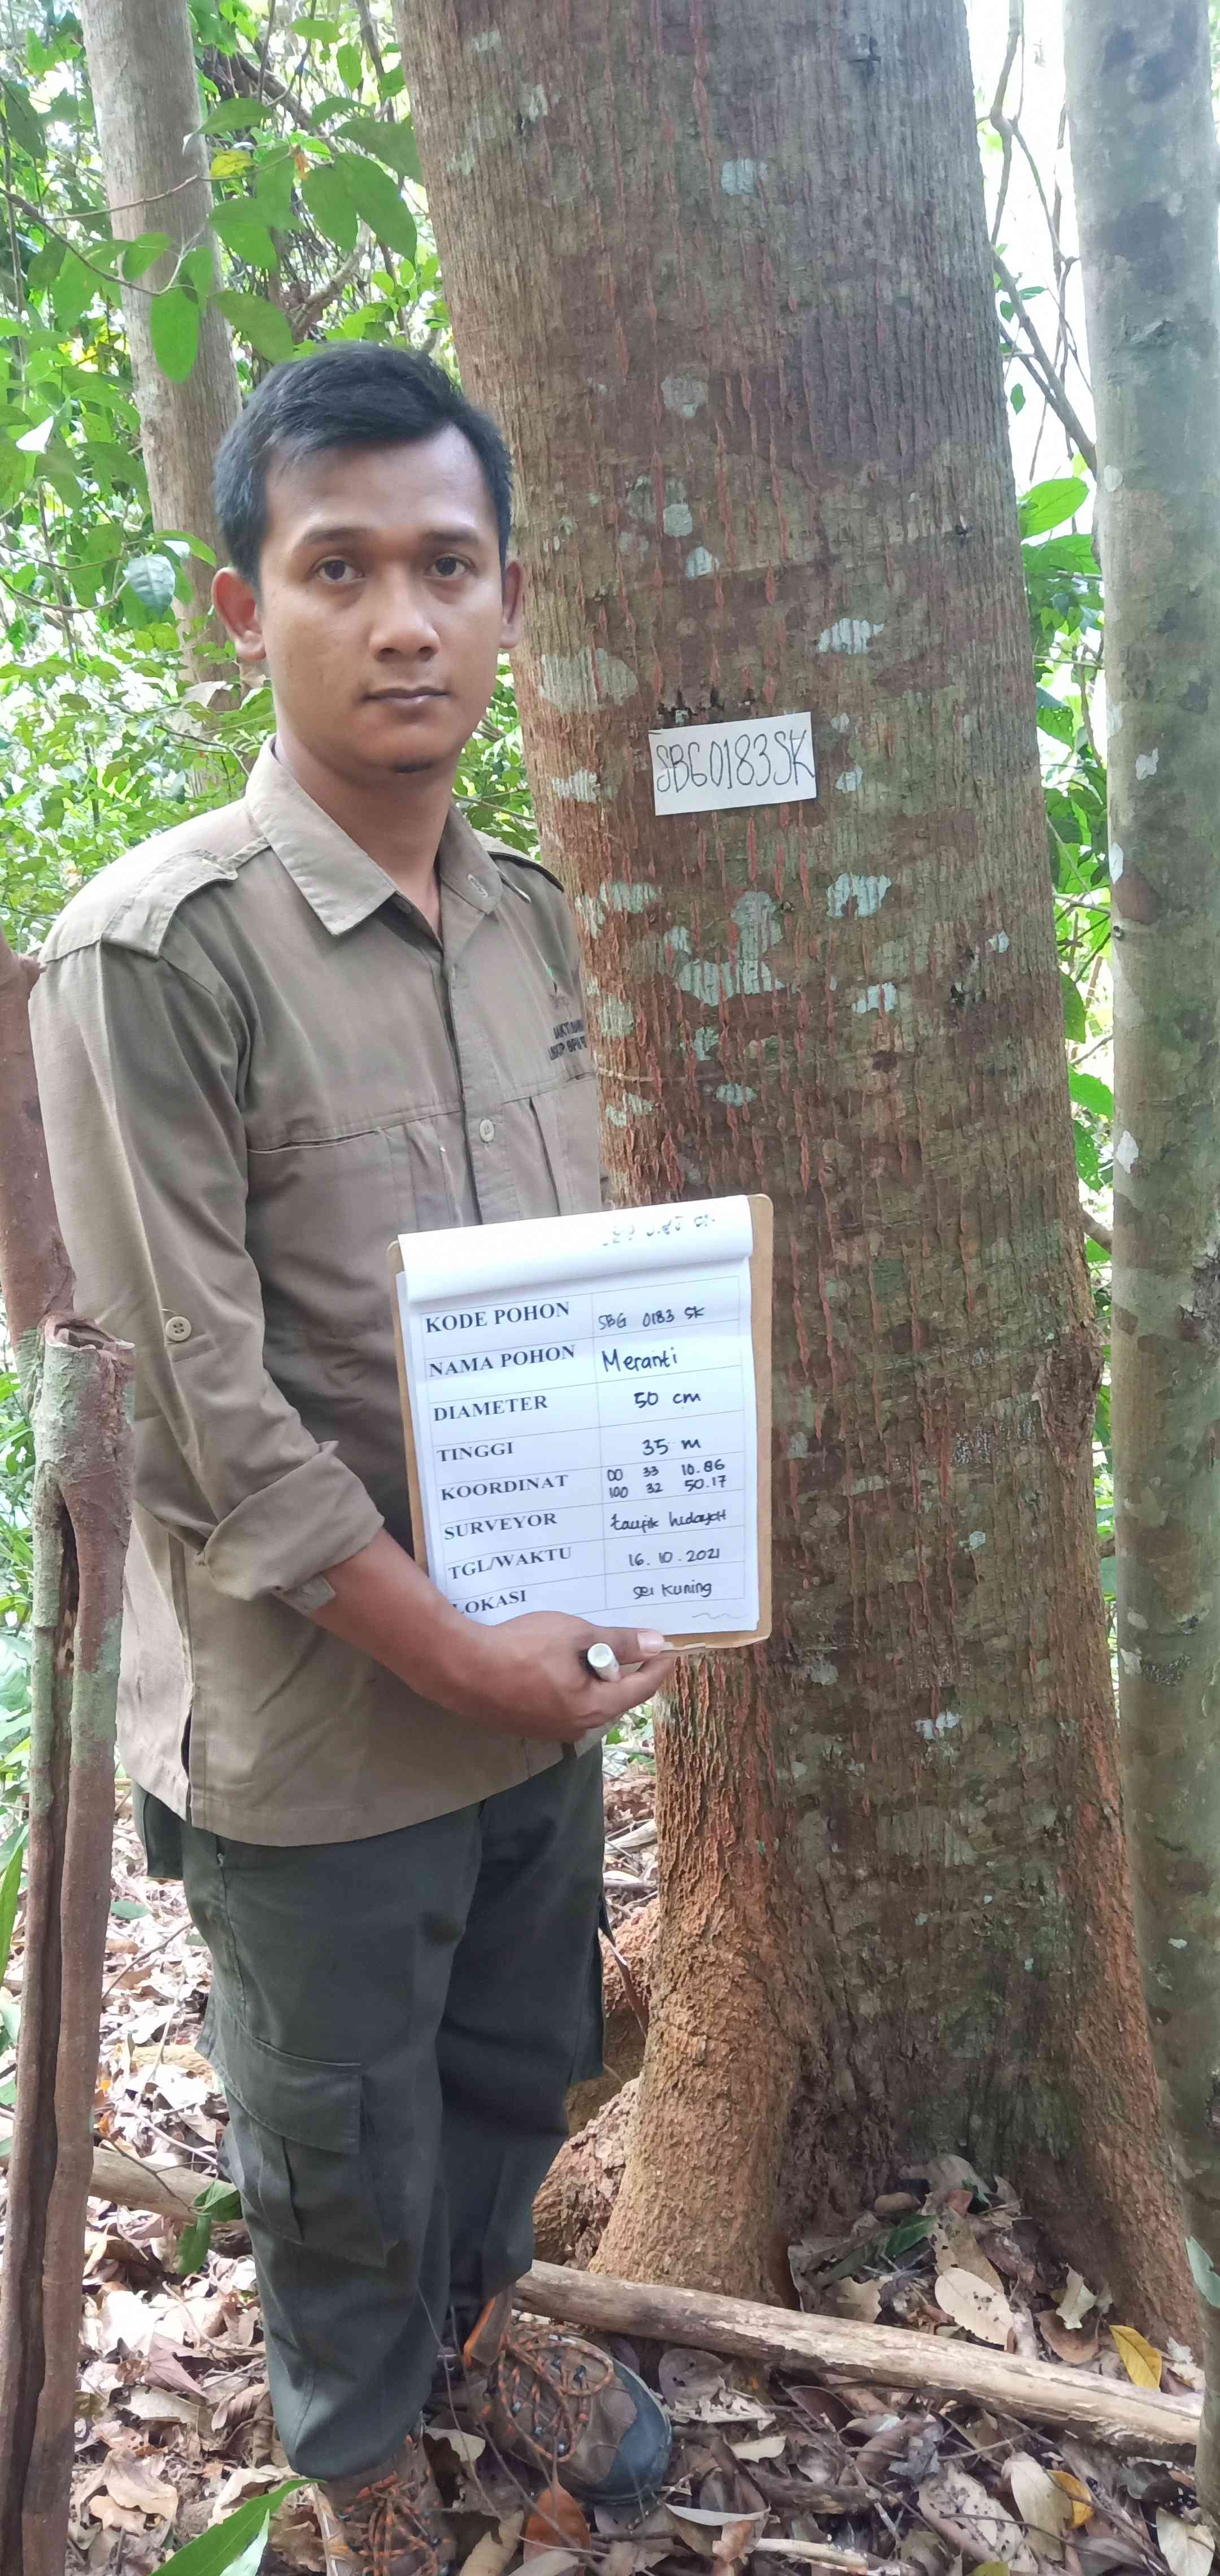 SBG0183SK
KODE POHON SBG 0183 SK
NAMA POHON Meranti
DIAMETER 50 cm
TINGGI 35 m
KOORDINAT 00 33 10.86
100 32 50.17
SURVEYOR taufik hidayat
TGL/WAKTU 16.10.2021
LOKASI Sei Kuning